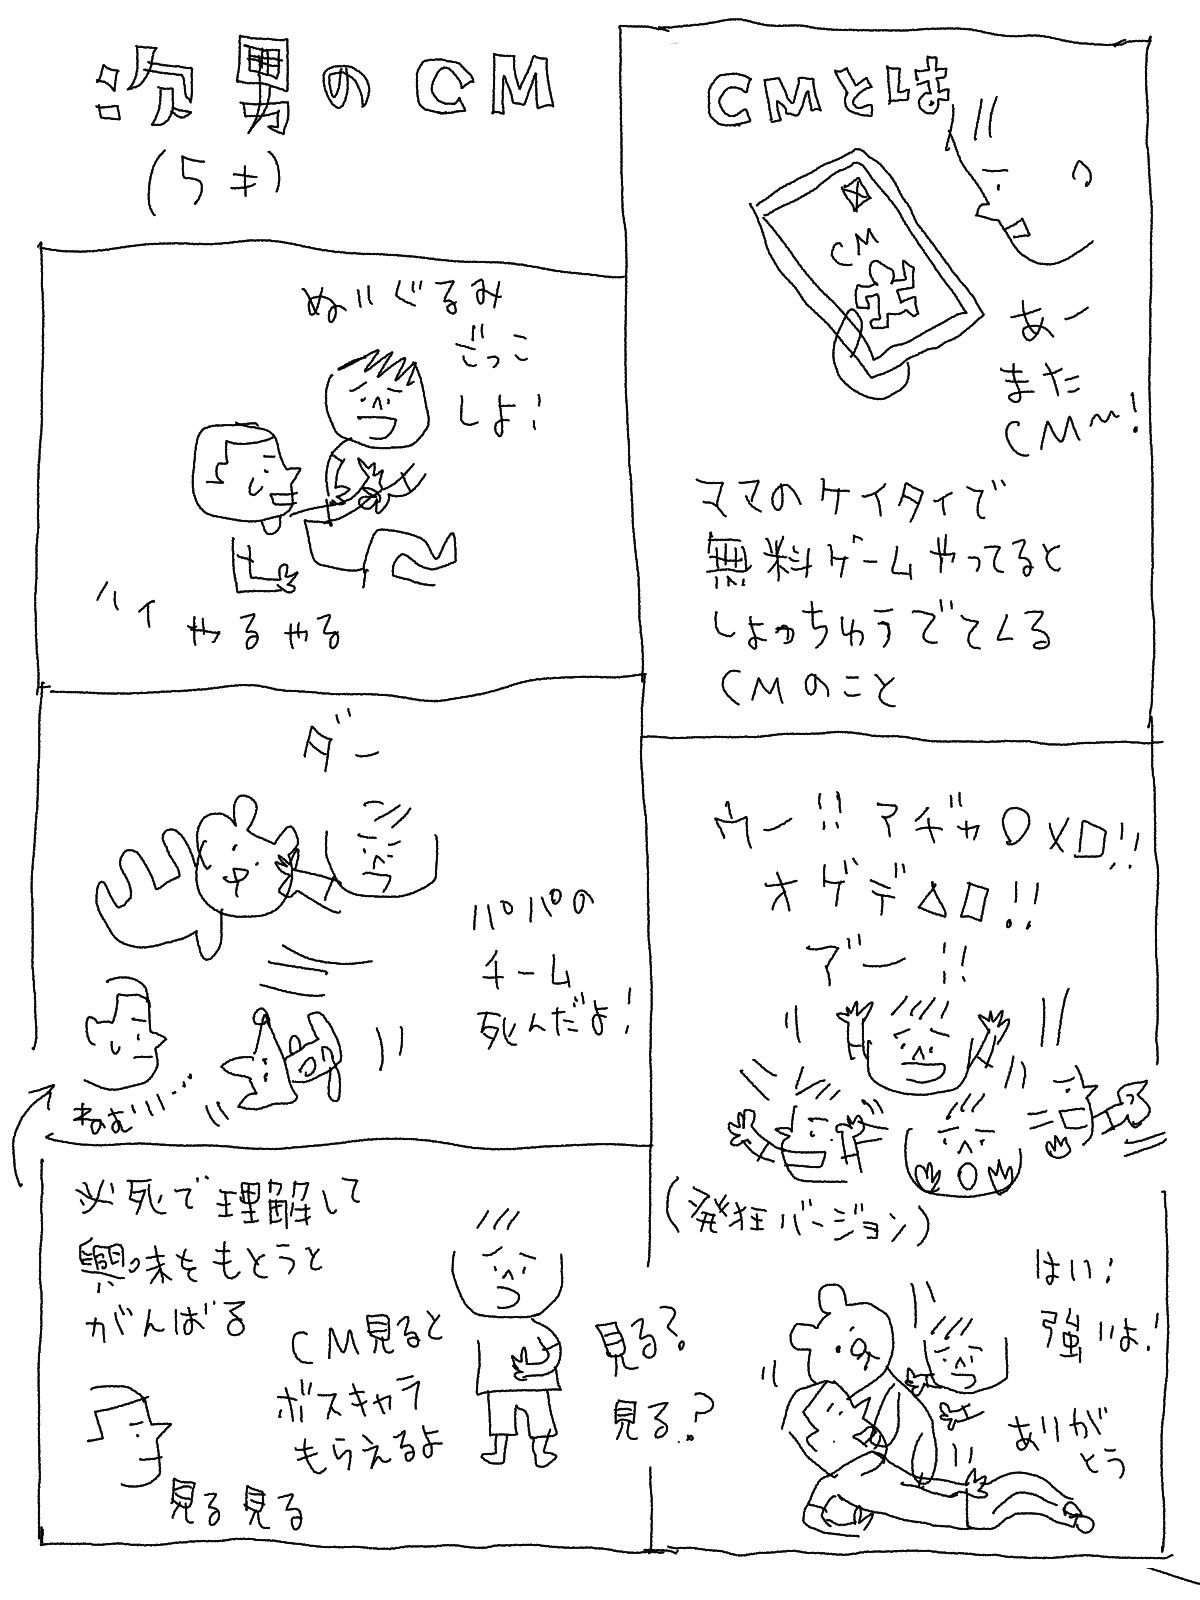 次男のCM
(5才)
ぬいぐるみ
ごっこ
しよ!
ハイ
やるやる
ダー
パパの
チーム
死んだよ!
ねむい…
必死で理解して
興味をもとうと
がんばる
CM見ると
ボスキャラ
もらえるよ
見る?
見る?
見る見る
CMとは
あー
また
CM〜!
ママのケイタイで
無料ゲームやってると
しょっちゅうでてくる
CMのこと
ウー!! アギャ○×□!!
オゲデ△□!!
ア゛ー!!
(発狂バージョン)
はい!
強いよ!
ありが
とう